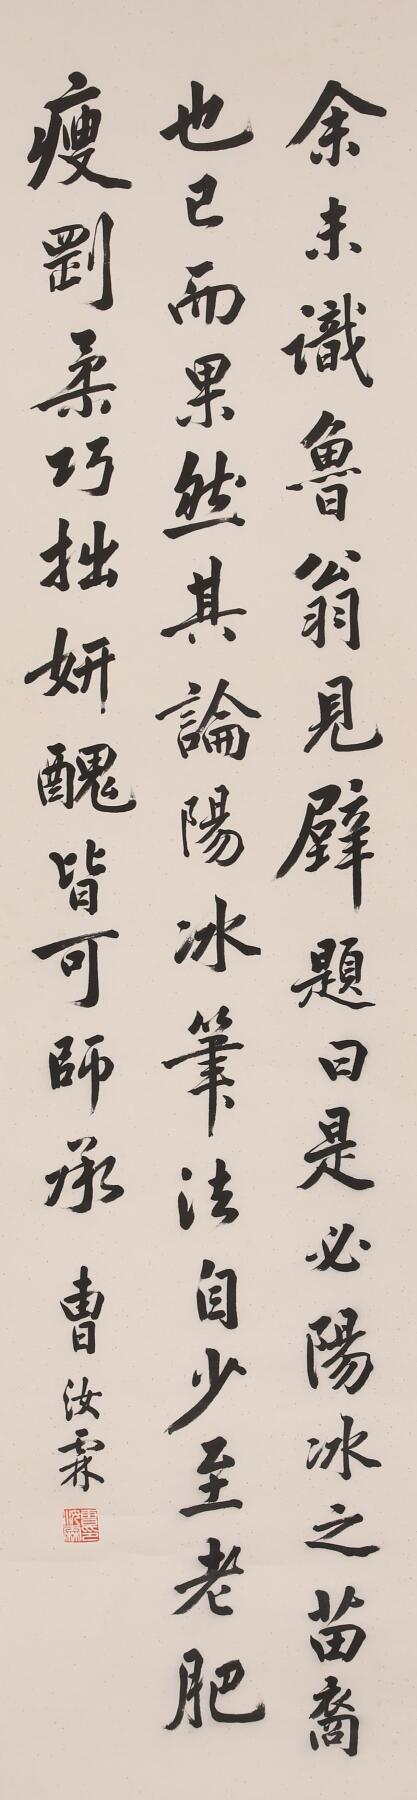 余未識魯翁見壁題曰是必陽冰之苗裔
也已而果然其論陽冰筆法自少至老肥
瘦剛柔巧拙妍醜皆可師承
曹汝霖